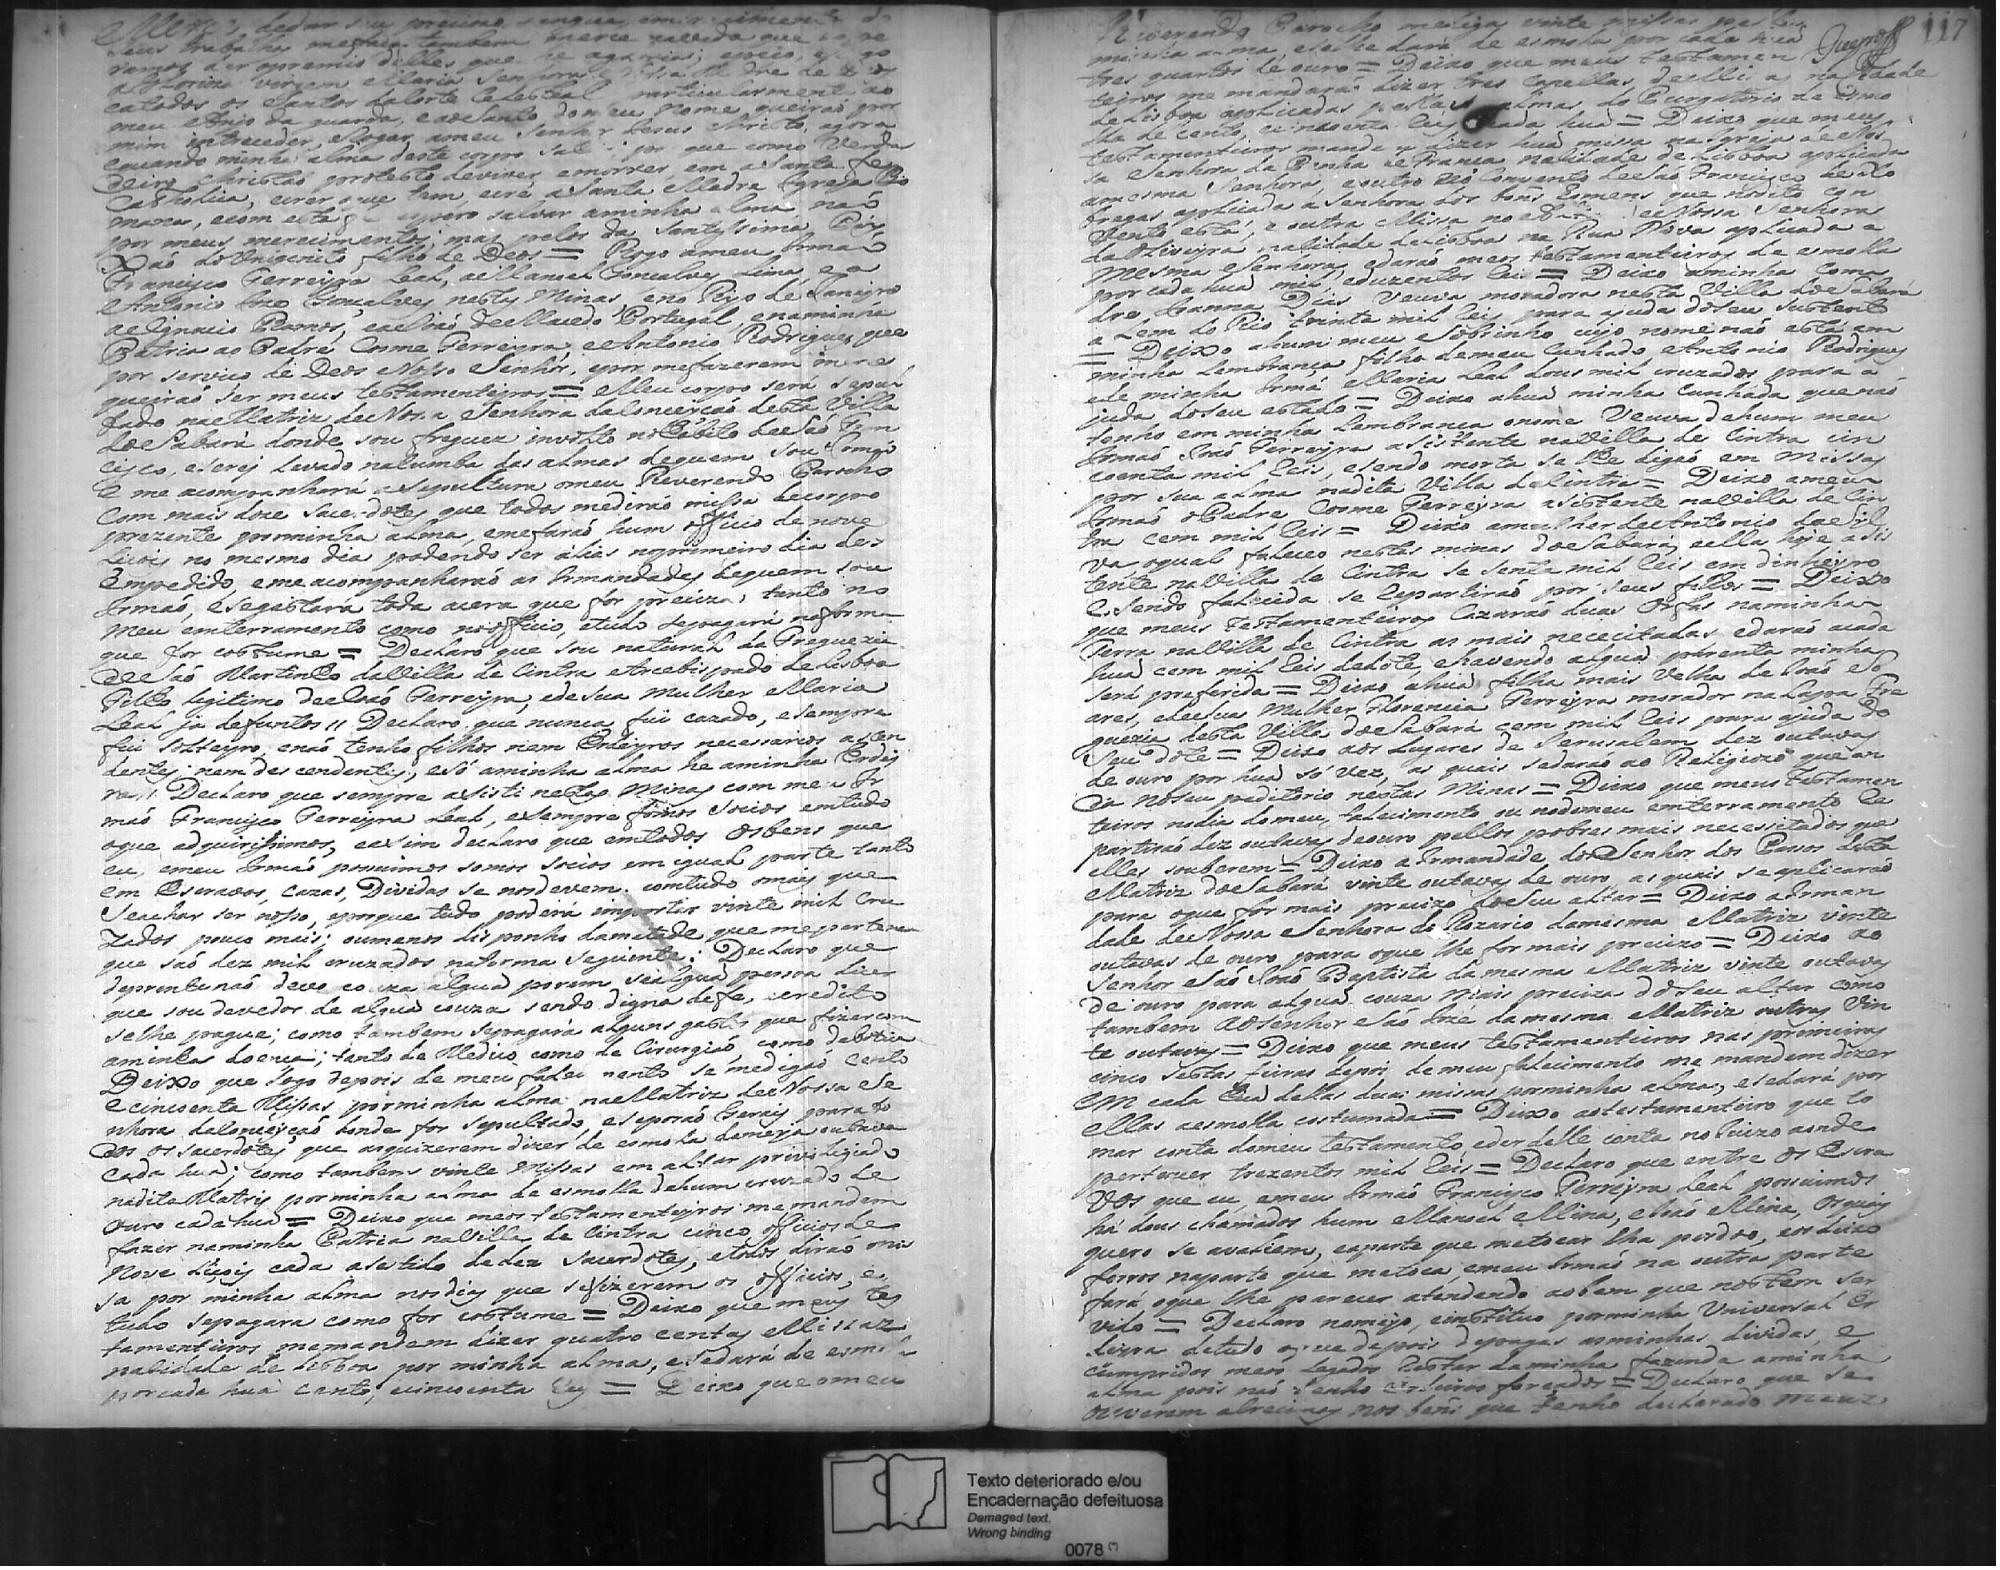 Merce, dedar seu precioso sangue, em
seus trabalhos mefaça tambem merce
ramos dar o premio delles que he agloria; epeço, e rogo
aGlorioza virgem Maria Senhora Nossa Madre de Deos
eatodos os Santos daCorte Celestial particularmente ao
meu Anjo da guarda, eaoSanto domeu Nome queiraõ por
mim interceder, eRogar ameu Senhor Jesus Christo, agora
equando minha alma deste corpo sair; por que como Verda
deiro Christaõ protesto deviver, emorrer, em aSanta fe
Catholica, ecrer oque tem, ecrê aSanta Madre Igreja Ro
mana, ecom esta fe espero salvar aminha alma, naõ
por meus merecimentos, mas pelos da Santissima Pay
xaõ doUnigenito filho de Deos = Rogo ameu Irmaõ
Francisco Ferreyra Leal, aeManoel Gonçalves Lima, e a
Antonio Gonçalves nestas Minas, eno Rio de Janeyro
aeIgnacio Ramos, eaeJoaõ deMacedo Portugal, enaminha
Patria ao Padre Cosme Ferreyra, eAntonio Rodrigues que
por serviço de Deos Nosso Senhor, epor mefazerem merce
queiraõ ser meus testamenteiros = Meu corpo será sepul
tado naMatriz deNossa Senhora daConceyçaõ desta Villa
doeSabará donde sou freguez involto noHabito deSaõ Fran
cisco, eserej levado natumba das almas dequem sou Irmaõ
E me acompanhará aSepultura omeu Reverendo Parocho
Com mais doze Sacerdotes que todos medirao missa decorpo
prezente porminha alma, emefaraõ hum officio de nove
Licois no mesmo dia podendo ser áliás noprimeiro dia des
Empedido, eme acompanharaõ as Irmandades dequem sou
Irmaõ, eSegastará toda acera que for preciza, tanto no
Meu emterramento como noofficio, etudo Sepagará naforma
que for costume = Declaro que sou natural da Freguezia
deSaõ Martinho daVilla de Cintra Arcebispado deLisboa
Filho legitimo deJoaõ Ferreyra, edeSua Mulher Maria
Leal ja defuntos // Declaro que nunca fui cazado, eSempre
fui Solteyro, enaõ tenho filhos nem Erdeyros necessarios acen
dentes, nem descendentes, eSó aminha alma he aminha Erdei
ra // Declaro que sempre aSisti nestas Minas com meu Ir
maõ Francisco Ferreyra Leal, eSempre fomos Socios emtudo
oque adquirissimos, eaSim declaro que emtodos Osbens que
eu, emeu Irmaõ posuimos somos Socios em igual parte tanto
em Escravos, cazas, Dividas se nosdevem, comtudo omais que
Seachar ser nosso, eporque tudo poderá importar vinte mil Cru
zados pouco mais, oumenos disponho dametade que mepertence
que saõ dez mil cruzados naforma Seguinte: Declaro que
deprentenaõ devo couza algũa porem sealgũa pessoa dizer
que sou devedor de algũa couza sendo digna defe, ecredito
selhe pague; como tambem Sepagará alguns gastos que fizercom
aminha doença; tanto de Medico como de Cirurgiaõ como debotica
Deixo que logo depois de meu falecimento se medigaõ cento
Ecincoenta Missas porminha alma naeMatriz deNossa Se
nhora daConceyçaõ donde for Sepultado, eSeporaõ Gerais para to
dos os sacerdotes que asquizerem dizer de esmola demeya outava
Cada huã; como tambem vinte Missas em altar priviligiado
nadita Matris porminha alma de esmolla dehum cruzado de
Ouro cada huã = Deixo que meos testamenteyros memandem
fazer naminha Patria naVilla de Cintra cinco officios de
Nove Liçois cada aSestido dedez Sacerdotes, etodos diraõ mis
sa por minha alma nos dias que Sefizerem os officios, e
tudo Sepagara como for costume = Deixo que meus tes
tamenteiros memandem dizer quatro centas Missas
nacidade de Lisboa por minha alma, eSedará de esmolla
porcada huã cento, ecincoenta Reis = Deixo que omeu
117
Reverendo Parocho mediga vinte missas pella
minha alma, eselhe dará de esmola por cada huã
tres quartos de ouro = Deixo que meus testamen
teiros me mandaraõ dizer tres Capellas deMissas naCidade
deLisboa aplicadas pellas almas do Purgatorio de Esmo
lla de cento, ecincoenta Reis cada huã = Deixo que meus
testamenteiros mandem dizer huã missa na Igreja deNos
sa Senhora da Penha de Franca naCidade deLisboa aplicada
amesma Senhora, eoutra noConvento deSaõ Francisco de Xo
bregas aplicada a Senhora dos bons Homens que nodito Con
vento esta; e outra Missa no deNossa Senhora
daOliveyra naCidade deLisboa na Rua Nova aplicada a
Mesma Senhora, edaraõ meos testamenteiros de esmolla
por cada huã mil, eduzentos Reis = Deixo aminha Coma
dre, Joanna Dias Veuva moradora nesta Villa doeSabará
alem do Rio trinta mil Reis para ajuda doseu Sustento
= Deixo ahum meu Sobrinho cujo nome naõ está em
minha Lembrança filho demeu Cunhado Antonio Rodrigues
ede minha Irmã Maria Leal dous mil cruzados para a
juda doseu estado = Deixo ahuã minha Cunhada que naõ
tenho em minha Lembrança onome Veuva dehum meu
Irmaõ Joaõ Ferreyra asistente naVilla de Cintra cin
coenta mil Reis, eSendo morta se lhe digaõ em Missas
por sua alma nadita Villa deCintra = Deixo ameu
Irmaõ oPadre Cosme Ferreyra asistente naVilla de Cin
tra cem mil Reis = Deixo amulher deAntonio daSil
va oqual faleceo nestas minas doeSabará, eella hoje asis
tente naVilla de Cintra se senta mil Reis em dinheyro
E Sendo falecida se Repartiraõ por seus filhos = Deixo
que meus Testamenteiros Cazaraõ duas Orfas naminha
Terra naVilla de Cintra as mais necesitadas, edaraõ acada
huã cem mil Reis dedote, ehavendo algũa parente minha
será preferida = Deixo ahuã filha mais Velha de Joaõ So
ares, edeSua Mulher Florencia Ferreyra morador na Lapa Fre
guezia desta Villa doeSabará cem mil Reis para ajuda do
Seu dote = Deixo aos Lugares de Jerusalem dez outavas
de ouro por huã só vez, as quais sedaraõ ao Religiozo que an
da noseu peditorio nestas Minas = Deixo que meus testamen
teiros nodia domeu falecimento ou nodomeu emterramento Re
partiraõ dez outavas deouro pellos pobres mais necessitados que
elles souberem = Deixo a Irmandade doSenhor dos Passos desta
Matriz doeSabará vinte outavas de ouro, as quais se aplicaraõ
para oque for mais precizo doSeu altar = Deixo aIrman
dade deNossa Senhora do Rozario damesma Matriz vinte
outavas de ouro para oque lhe for mais precizo = Deixo ao
Senhor Saõ Joaõ Baptista da mesma Matriz vinte outavas
de ouro para algũa couza mais preciza doSeu altar como
tambem aoSenhor Saõ Jozé damesma Matriz outras vin
te outavas = Deixo que meus testamenteiros nas primeiras
cinco Sestas feiras depois demeu falecimento me mandem dizer
em cada huã dellas duas missas porminha alma, eSedará por
ellas aesmolla costumada = Deixo aotestamenteiro que to
mar conta domeu testamento, eder delle conta noJuizo aonde
pertencer trezentos mil Reis = Declaro que entre os Escra
vos que eu, emeu Irmaõ Francisco Ferreyra Leal posuimos
há dous chamados hum Manoel Mina, eJoaõ Mina, Osquais
quero se avaliem, eaparte que metocar lha perdoo, eosdeixo
forros naparte que metoca, emeu Irmaõ na outra parte
fará oque lhe parecer atendendo aobem que nostem ser
vido = Declaro nomeyo, einstituo porminha Universal Er
deira detudo oque depois depagas asminhas dividas, e
cumpridos meos Legados Restar daminha fazenda aminha
alma pois naõ tenho erdeiros forçados = Declaro que se
ouverem alreimas nos bens que tenho declarado meus
Texto deteriorado e/ou
Encadernação defeituosa
Damaged text.
Wrong binding
0078 (*)